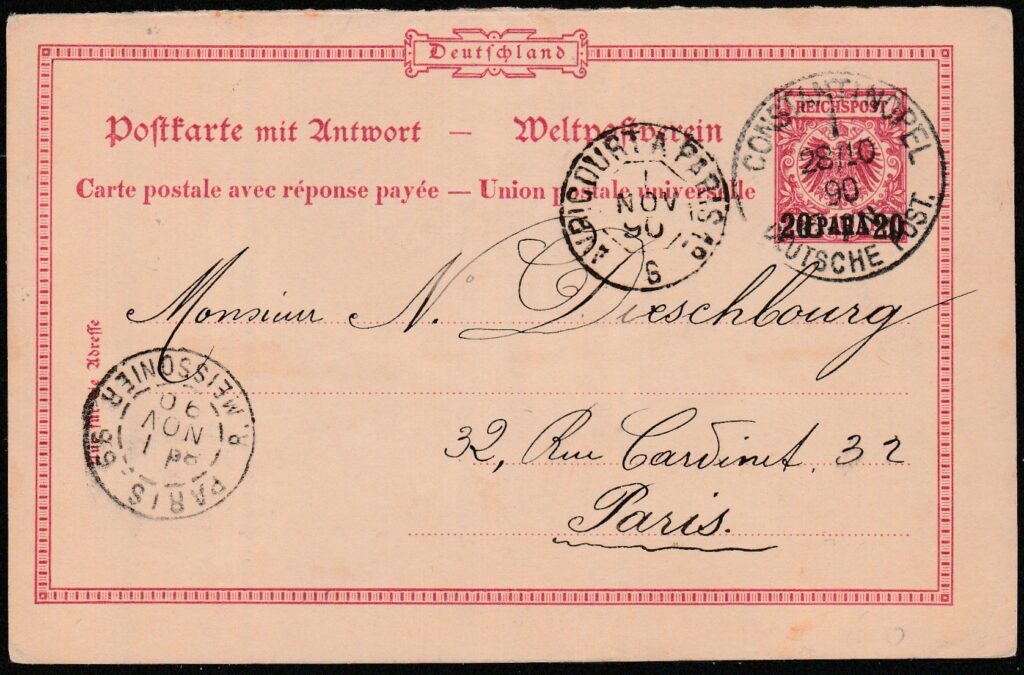 Deutschland
Postkarte mit Antwort — Weltpostverein
Carte postale avec réponse payée — Union postale universelle
REICHSPOST
20 PARA 20
CONSTANTINOPEL
1
28/10
90
DEUTSCHE POST.
AVRICOURT A PARIS
1
NOV
90
6
Monsieur N. Dieschbourg
32, Rue Cardinet 32
Paris.
PARIS
R. MEISSONIER
1
NOV
90